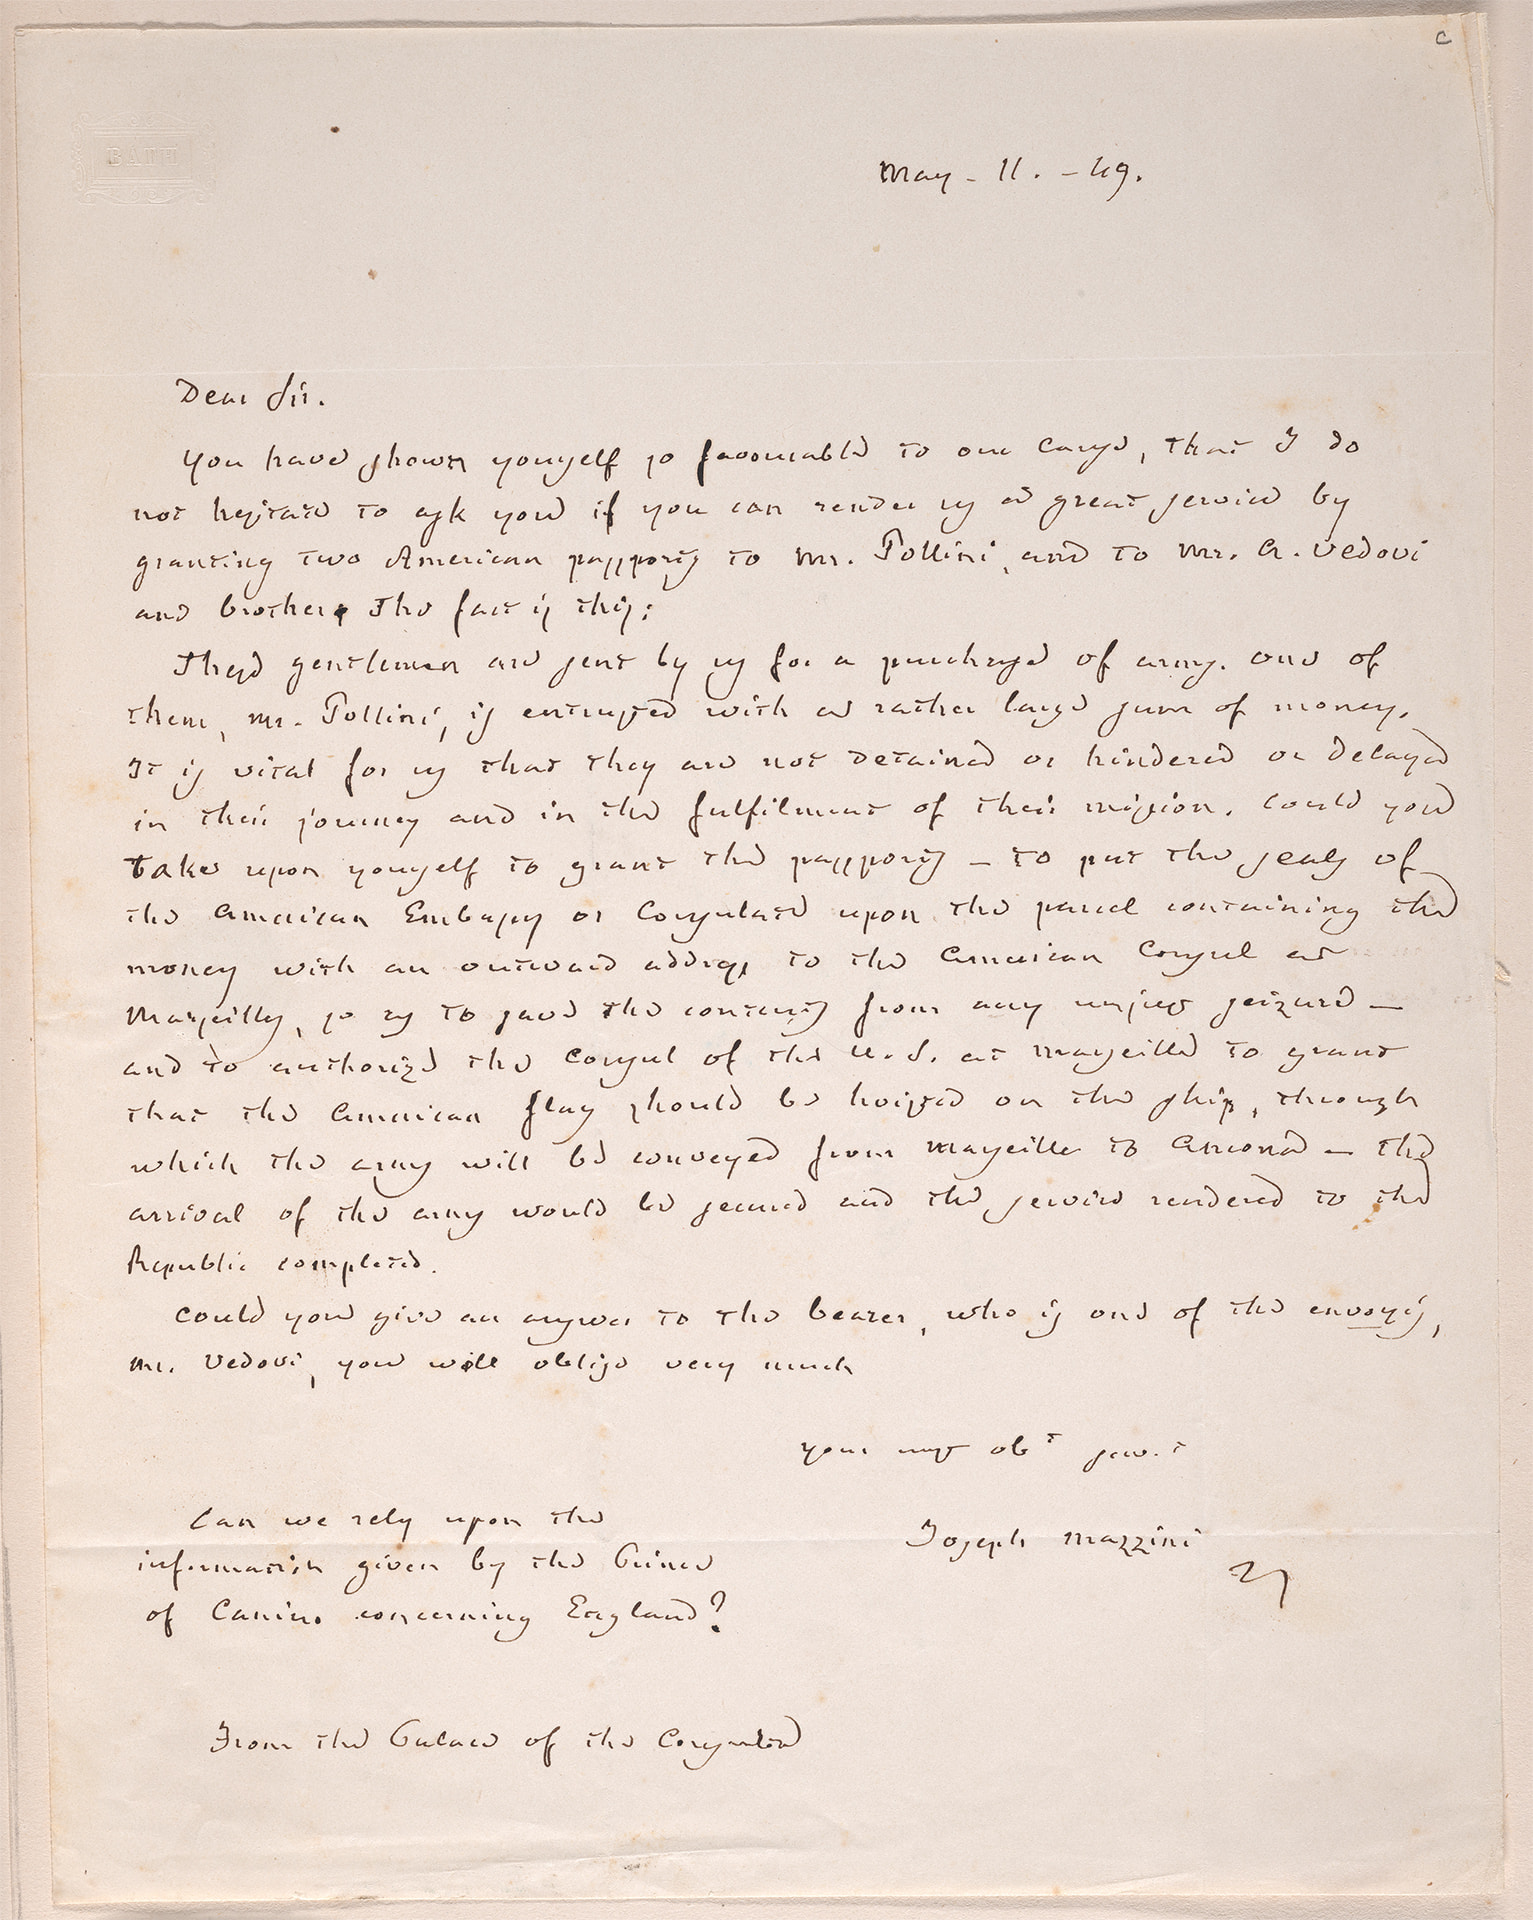 C
BATH
May - 11. - 49.
Dear Sir.
You have shown yourself so favourable to our cause, that I do
not hesitate to ask you if you can render us a great service by
granting two American passports to Mr. Pollini, and to Mr. A. Vedovi
and brother. The fact is this:
These gentlemen are sent by us for a purchase of arms. One of
them, Mr. Pollini, is entrusted with a rather large sum of money.
It is vital for us that they are not detained or hindered or delayed
in their journey and in the fulfilment of their mission. Could you
take upon yourself to grant the passports - to put the seals of
the American Embassy or Consulate upon the parcel containing the
money with an outward address to the American Consul at
Marseilles, so as to save the contents from any unjust seizure -
and to authorize the Consul of the U.S. at Marseille to grant
that the American flag should be hoisted on the ship, through
which the arms will be conveyed from Marseille to Ancona - the
arrival of the arms would be secured and the service rendered to the
Republic completed.
Could you give an answer to the bearer, who is one of the envoys,
Mr. Vedovi, you will oblige very much
your most obt servt
Joseph Mazzini
Can we rely upon the
information given by the Prince
of Canino concerning England?
From the Palace of the Consulta